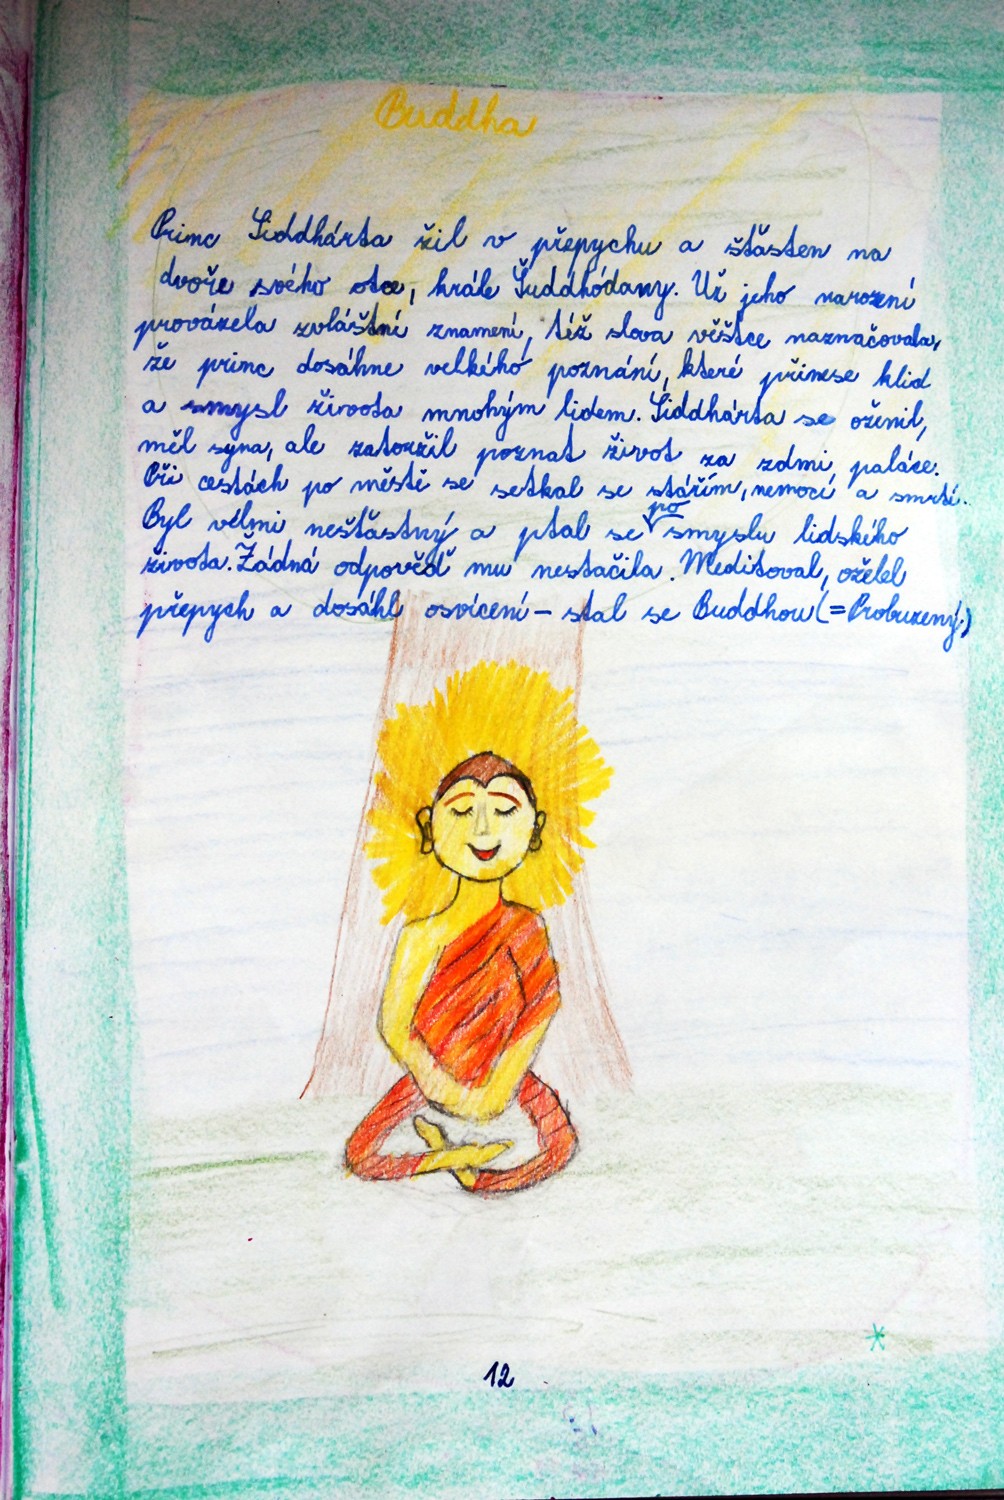 Buddha
Princ Siddhárta žil v přepychu a šťasten na
dvoře svého otce, krále Šuddhódany. Už jeho narození
provázela zvláštní znamení, též slova věštce naznačovala,
že princ dosáhne velkého poznání, které přinese klid
a smysl života mnohým lidem. Siddhárta se oženil,
měl syna, ale zatoužil poznat život za zdmi paláce.
Při cestách po městě se setkal se stářím, nemocí a smrtí.
po
Byl velmi nešťastný a ptal se smyslu lidského
života. Žádná odpověď mu nestačila. Meditoval, oželel
přepych a dosáhl osvícení – stal se Buddhou (= Probuzený.)
12